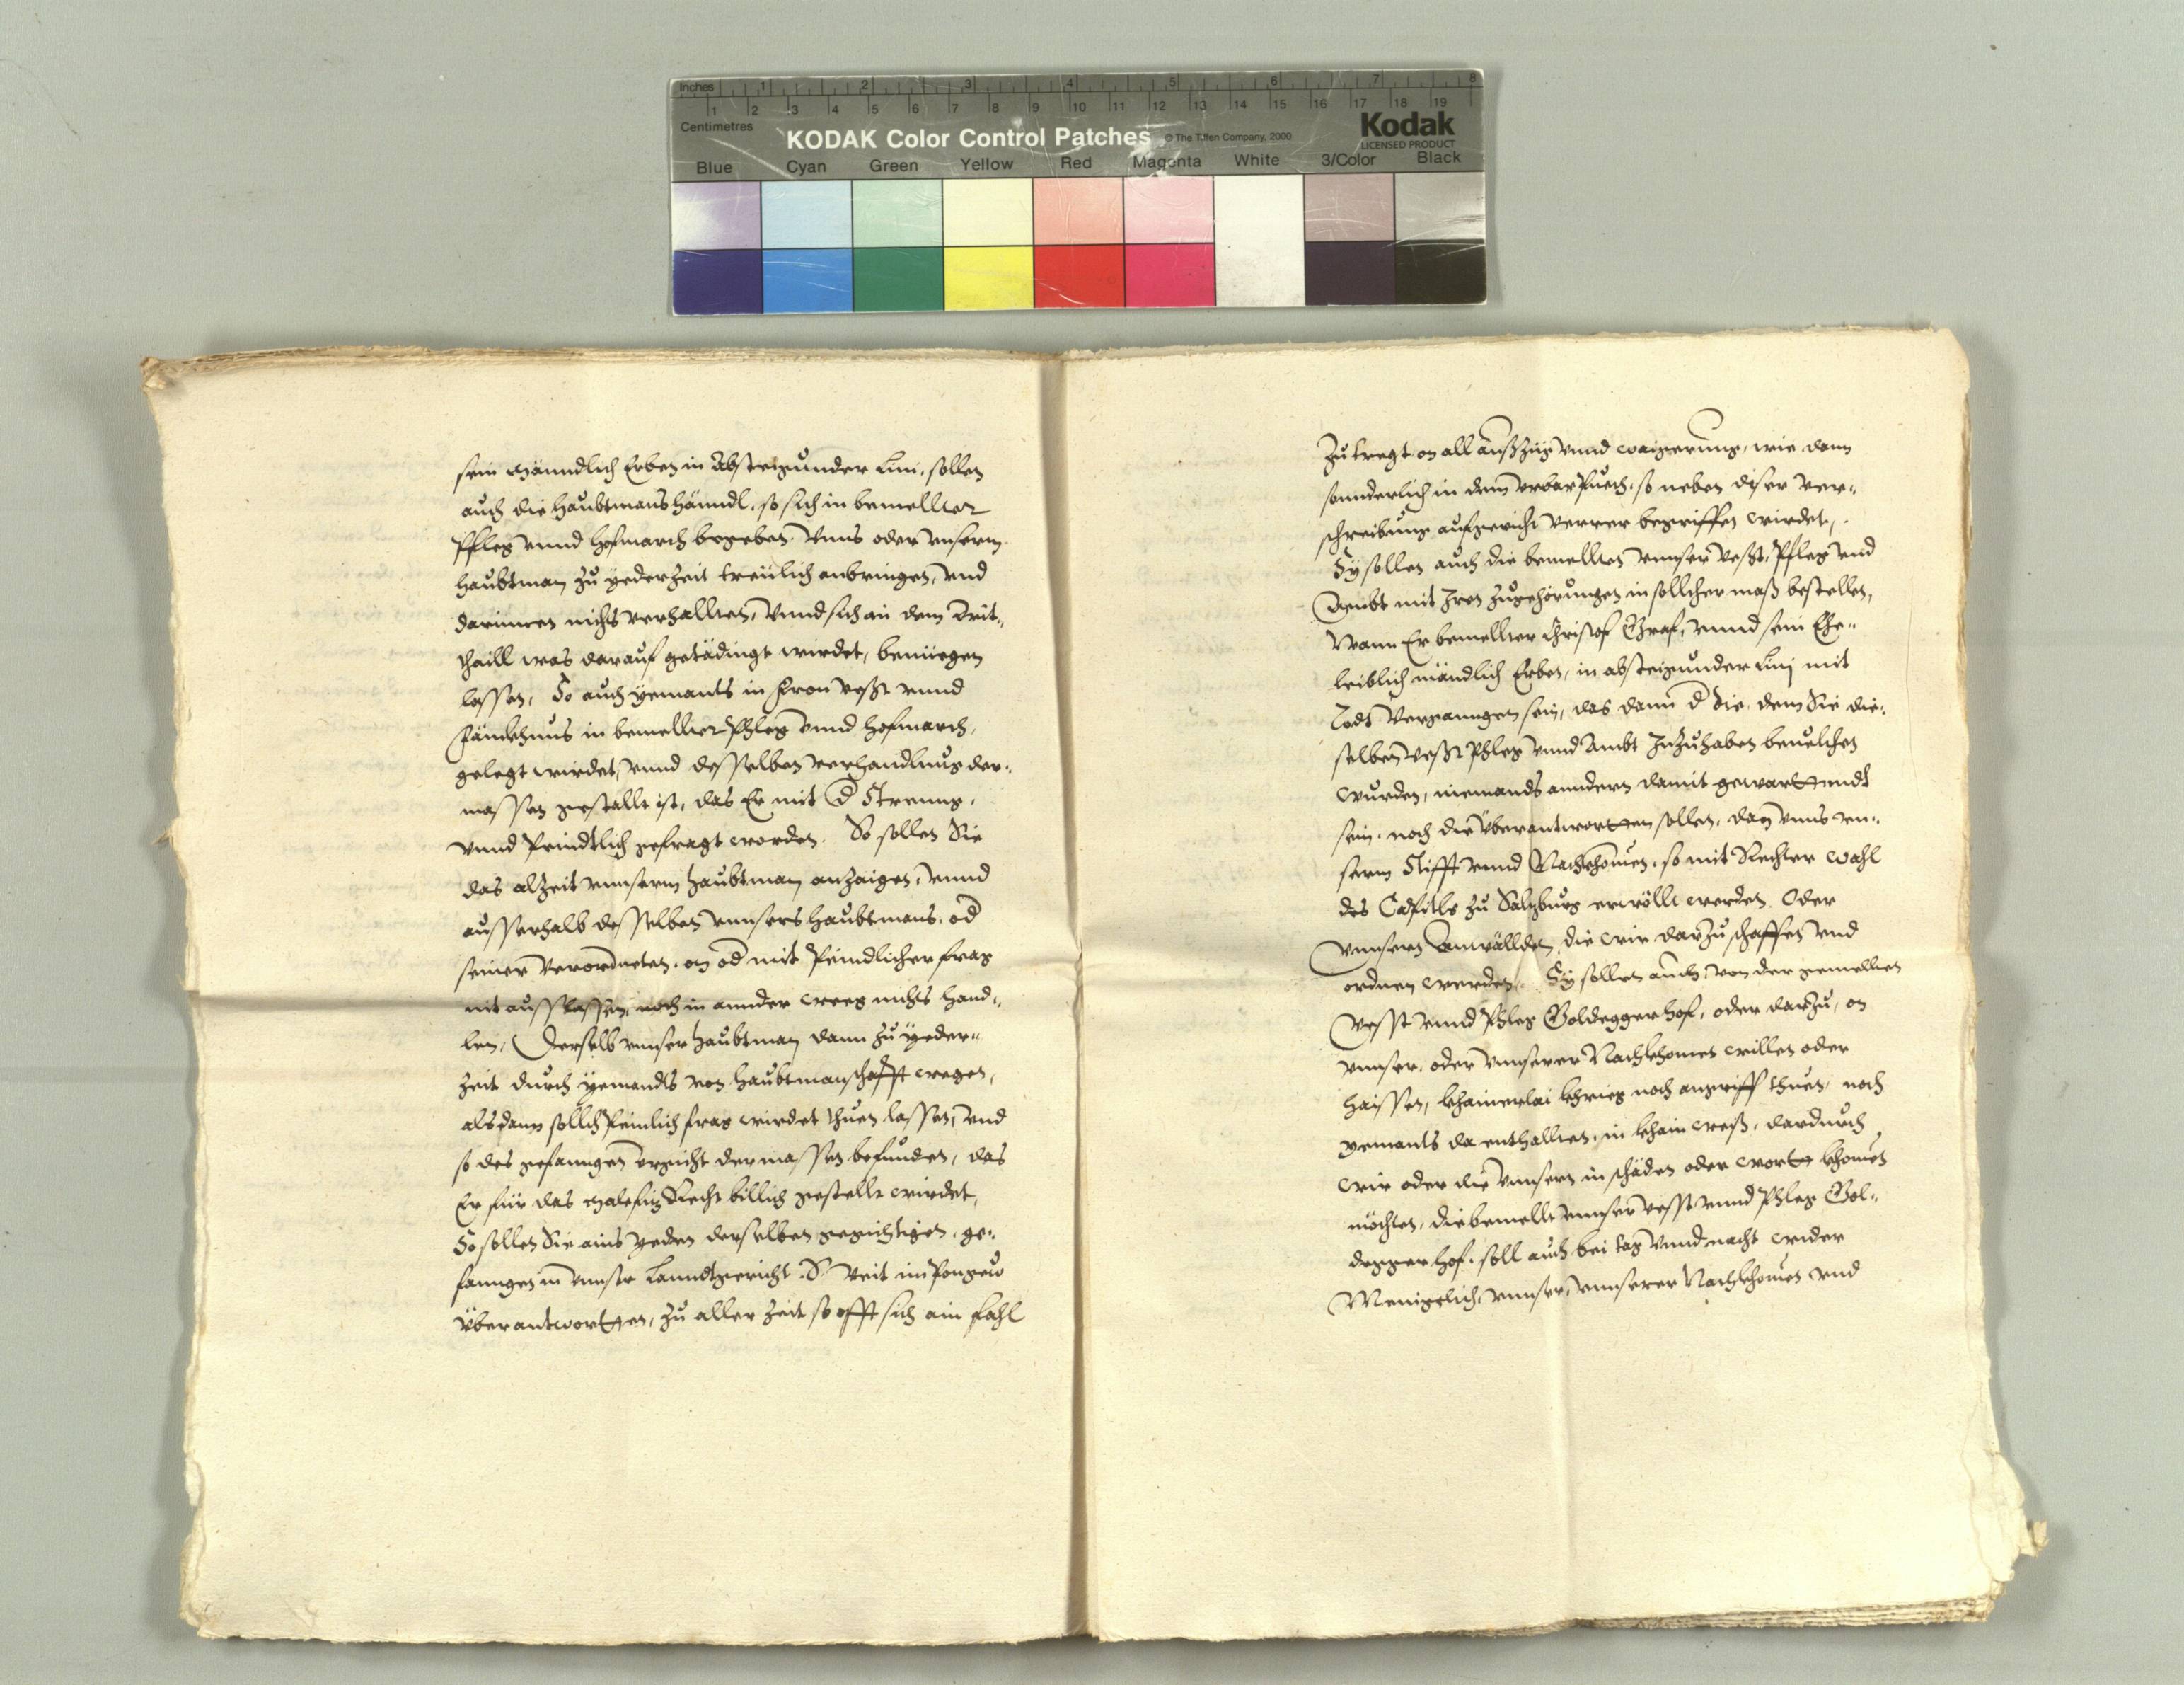 Inches 1 2 3 4 5 6 7 8
1 2 3 4 5 6 7 8 9 10 11 12 13 14 15 16 17 18 19
Centimetres
KODAK Color Control Patches © The Tiffen Company, 2000 Kodak
LICENSED PRODUCT
Blue Cyan Green Yellow Red Magenta White 3/Color Black
sein Männdlich Erben in Absteigunder Lini, sollen
auch die Haubtmans Hänndl, so sich in bemellter
Pfleg vnnd Hofmarch begeben, Vnns oder vnserm
Haubtman zu yederzeit treulich anbringen, vnd
darinnen nichts verhallten, vnnd sich an dem Drit„
thaill was darauf getädingt wirdet, benüegen
lassen, So auch yemants in Fron Vesst vnnd
Fänckhnus in bemellter Phleg vnnd Hofmarch,
gelegt wirdet, vnnd desselben verhandlung der„
massen gestallt ist, das Er mit d Strenng,
vnnd Peindtlich gefragt worden. So sollen Sie
das alzeit vnnserm Haubtman anzaigen, vnnd
ausserhalb desselben vnnsers Haubtmans, od
seiner Verordneten, on od mit Peindlicher frag
nit auss lassen, noch in annder weeg nichts Hand„
len, Derselb vnnser Haubtman dann zu yeder„
zeit durch yemandts von Haubtmanschafft wegen,
alsdann sollch Peinlich frag wirdet thuen lassen, vnd
so des gefanngen vrgicht dermassen befunden, das
Er für das Malefitz Recht billich gestellt wirdet,
So sollen Sie ains yeden derselben gegichtigen, ge„
fanngen in vnnser Lanndtgericht S. Veit im Pongew
Überantwortten, zu aller Zeit so offt sich ain fahl
Zutregt on all Auszüg vnnd waigerung, wie dann
sonnderlich in dem vrbar Puech, so neben diser Ver„
schreibung aufgericht verrer begriffen wirdet,
Sy sollen auch die bemellten vnnser Vesst, Pfleg vnd
Ambt mit Iren Zugehörungen in sollcher mass bestellen,
Wann Er bemellter Christof Graf, vnnd sein Ehe„
leiblich mändlich Erben, in absteigunder Linj mit
Todt Vergangen sein, das dann d die, dem Sie die„
selben Vesst Phleg vnnd Ambt Inzuhaben beuelchen
wurden, niemands anndern damit gewarttundt
sein, noch die Überantwortten sollen, dann vnns vn„
serm Stifft vnnd Nachkhomen, so mit Rechter wahl
des Capitls zu Saltzburg erwöllt werden, Oder
vnnsern Anwällden, die wir darzu schaffen vnd
ordnen werden. Sy sollen auch, von der gemellten
Vesst vnnd Phleg Goldegger hof, oder darzu, on
vnnser, oder vnnserer Nachkhomen willen oder
haissen, khainerlai khrieg noch angriff thuen, noch
yemants da enthallten, in khain weiß, dardurch
wir oder die vnnsern in schäden oder wortt khomen
möchten, die bemellt vnnser Vesst vnnd Phleg Gol„
degger hof, soll auch bei tag vnnd nacht wider
Meniggelich, vnnser, vnnserer Nachkhomen vnd